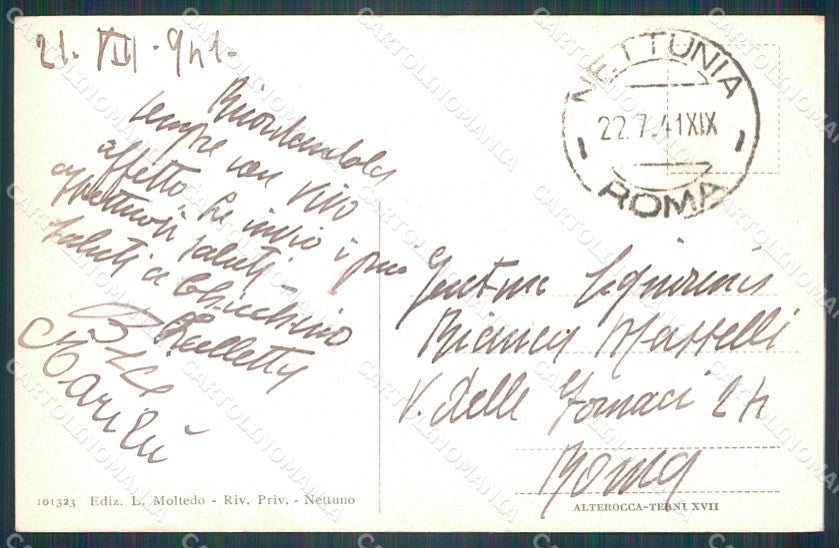 21. VII. 941.
Ricordandola
sempre con vivo
affetto, Le invio i più
affettuosi saluti -
Saluti a
Marilù
NETTUNIA
22.7.41XIX
ROMA
Gent.ma Signorina
Bianca Martelli
V. delle Fornaci 24
Roma
101323 Ediz. L. Moltedo - Riv. Priv. - Nettuno
ALTEROCCA-TERNI XVII
CARTOLINOMANIA